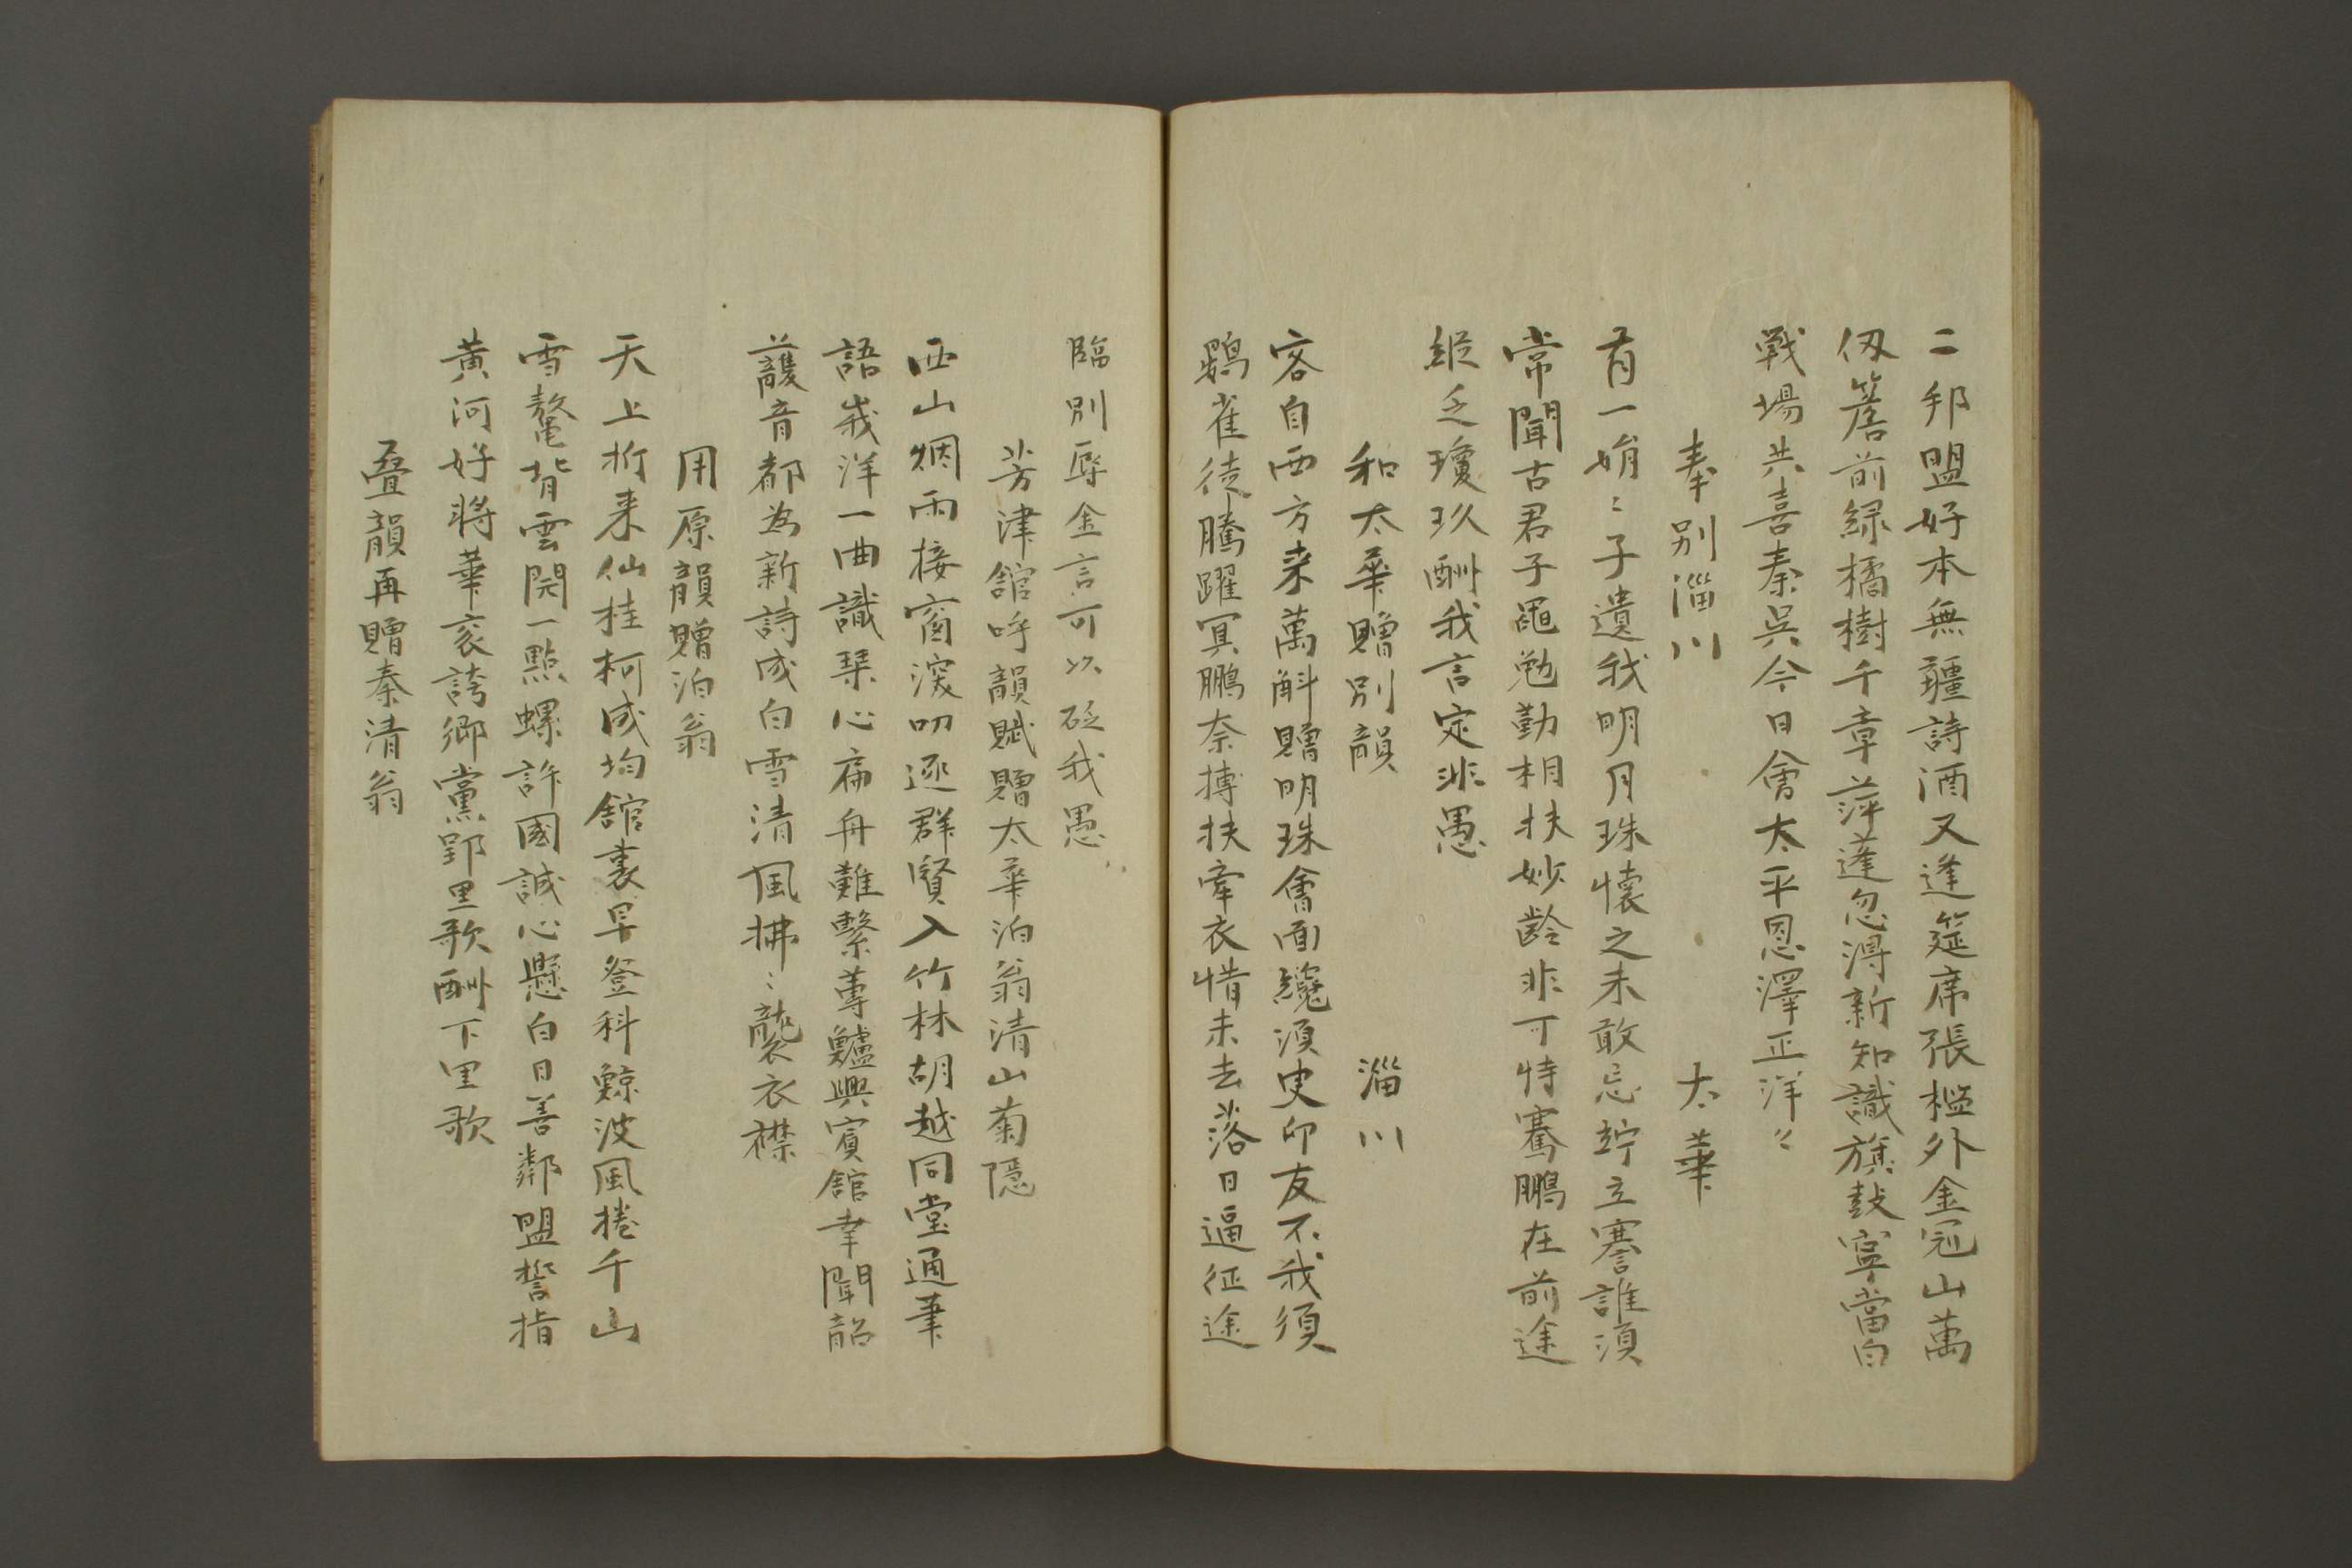 二邦盟好本無疆詩酒又逢筵席張檻外金冠山萬
仭簷前緑橘樹千章萍蓬忽淂新知識旗鼓寧當白
戰場共喜秦吳今日會太平恩澤正洋〻
奉別淄川　太華
有一娟〻子遺我明月珠懷之未敢忘竚立謇誰須
常聞古君子黽勉勤相扶妙齡非可恃騫鵬在前途
縱乏瓊玖酬我言定非愚
和太華贈別韻　淄川
客自西方来萬斛贈明珠會面纔須臾卬友不我須
鷃雀徒騰躍冥鵬奈摶扶牽衣惜未去落日逼征途
臨別辱金言可以砭我愚
芳津舘呼韻賦贈太華泊翁清山菊隠
西山烟雨接窗深叨逐群賢入竹林胡越同堂通筆
語峩洋一曲識琹心扁舟難繫蓴鱸興賓舘幸聞韶
頀音都為新詩成白雪清風拂〻襲衣襟
用原韻贈泊翁
天上折来仙桂柯成均舘裏早登科鯨波風捲千山
雪鰲背雲開一點螺許國誠心懸白日善鄰盟誓指
黄河好將華衮誇鄉黨郢里歌酬下里歌
疊韻再贈秦清翁